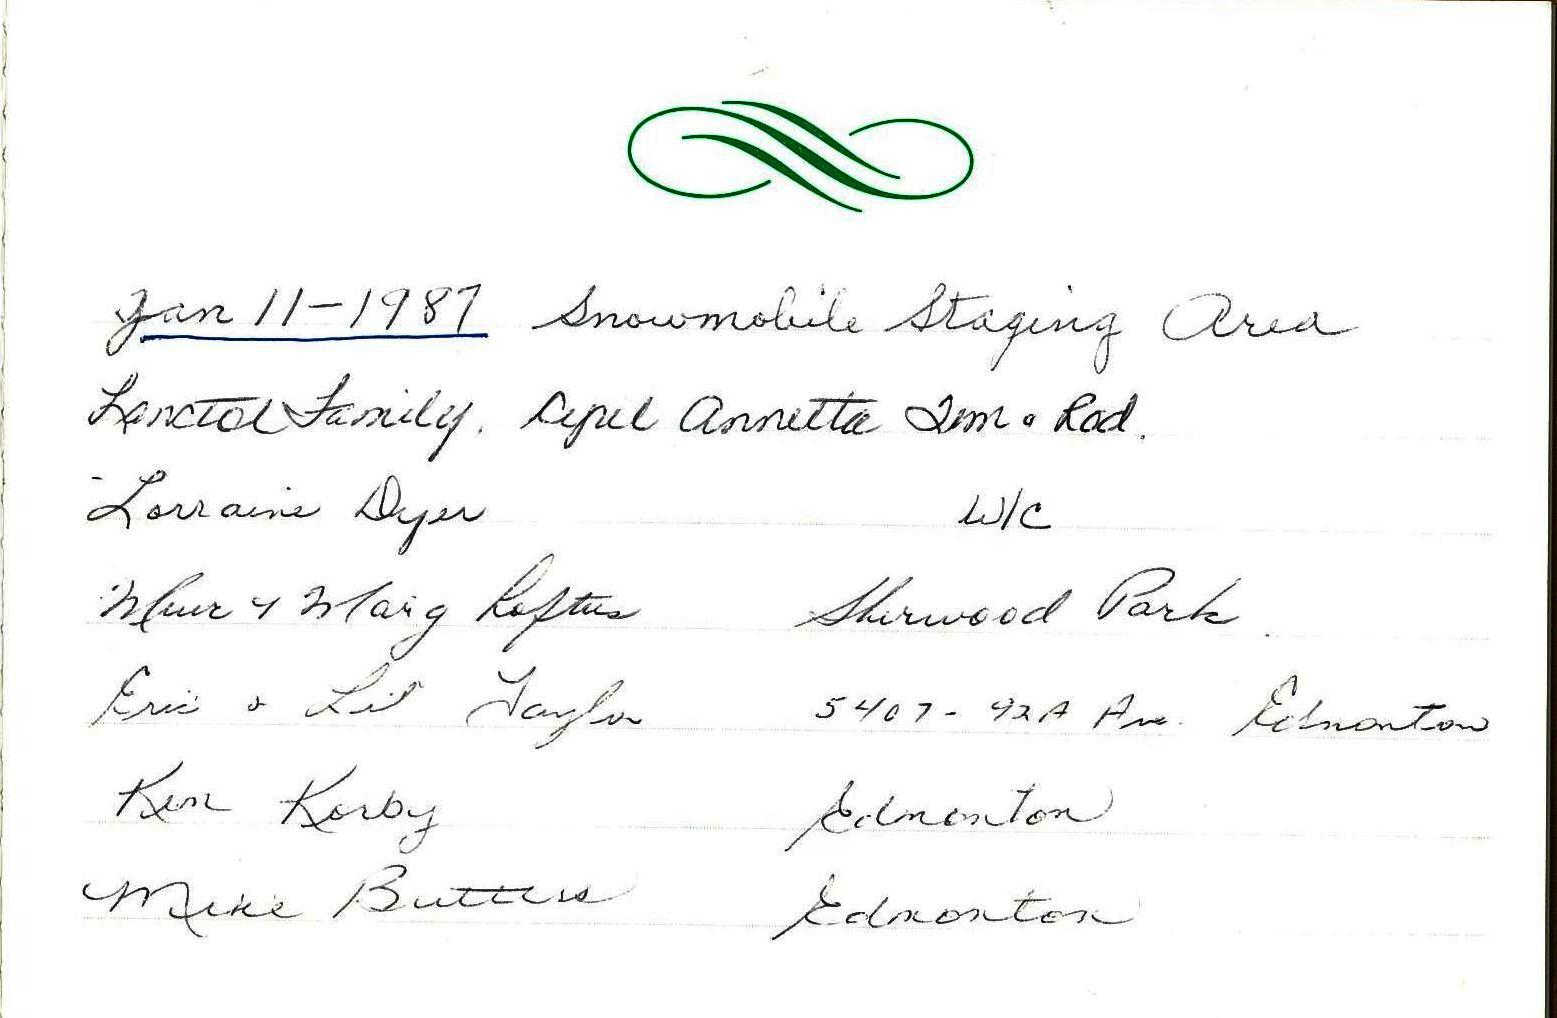 Jan 11-1987 Snowmobile Staging Area
Family. Annetta Tim & Rod.
Lorraine Dyer W/C
Muir & Marg Loftus Sherwood Park
Eric & Lil Taylor 5407- 92A Ave. Edmonton
Ken Korby Edmonton
Mike Butters Edmonton